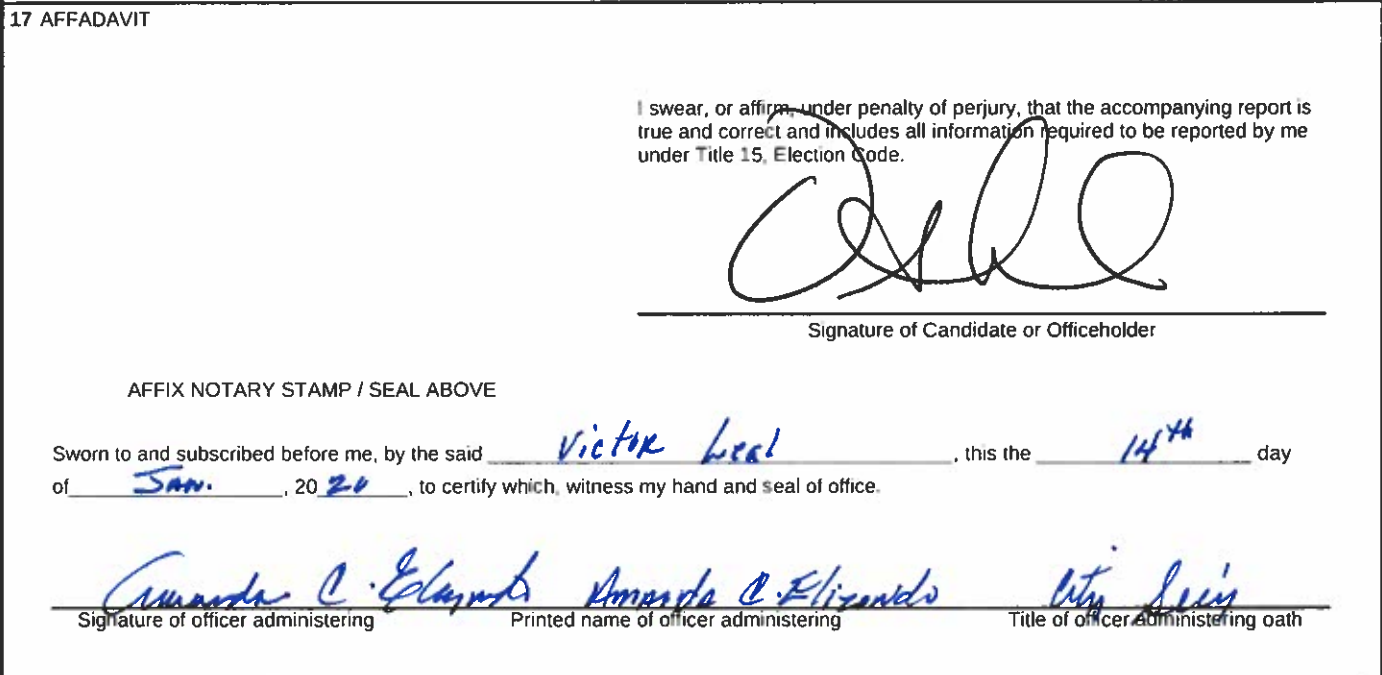 17 AFFADAVIT
I swear, or affirm, under penalty of perjury, that the accompanying report is
true and correct and includes all information required to be reported by me
under Title 15, Election Code.
Signature of Candidate or Officeholder
AFFIX NOTARY STAMP / SEAL ABOVE
Sworn to and subscribed before me, by the said Victor Leal, this the 14th day
of Jan., 20 20, to certify which, witness my hand and seal of office.
Amanda C. Elizondo Amanda C. Elizondo City Sec'y
Signature of officer administering Printed name of officer administering Title of officer administering oath